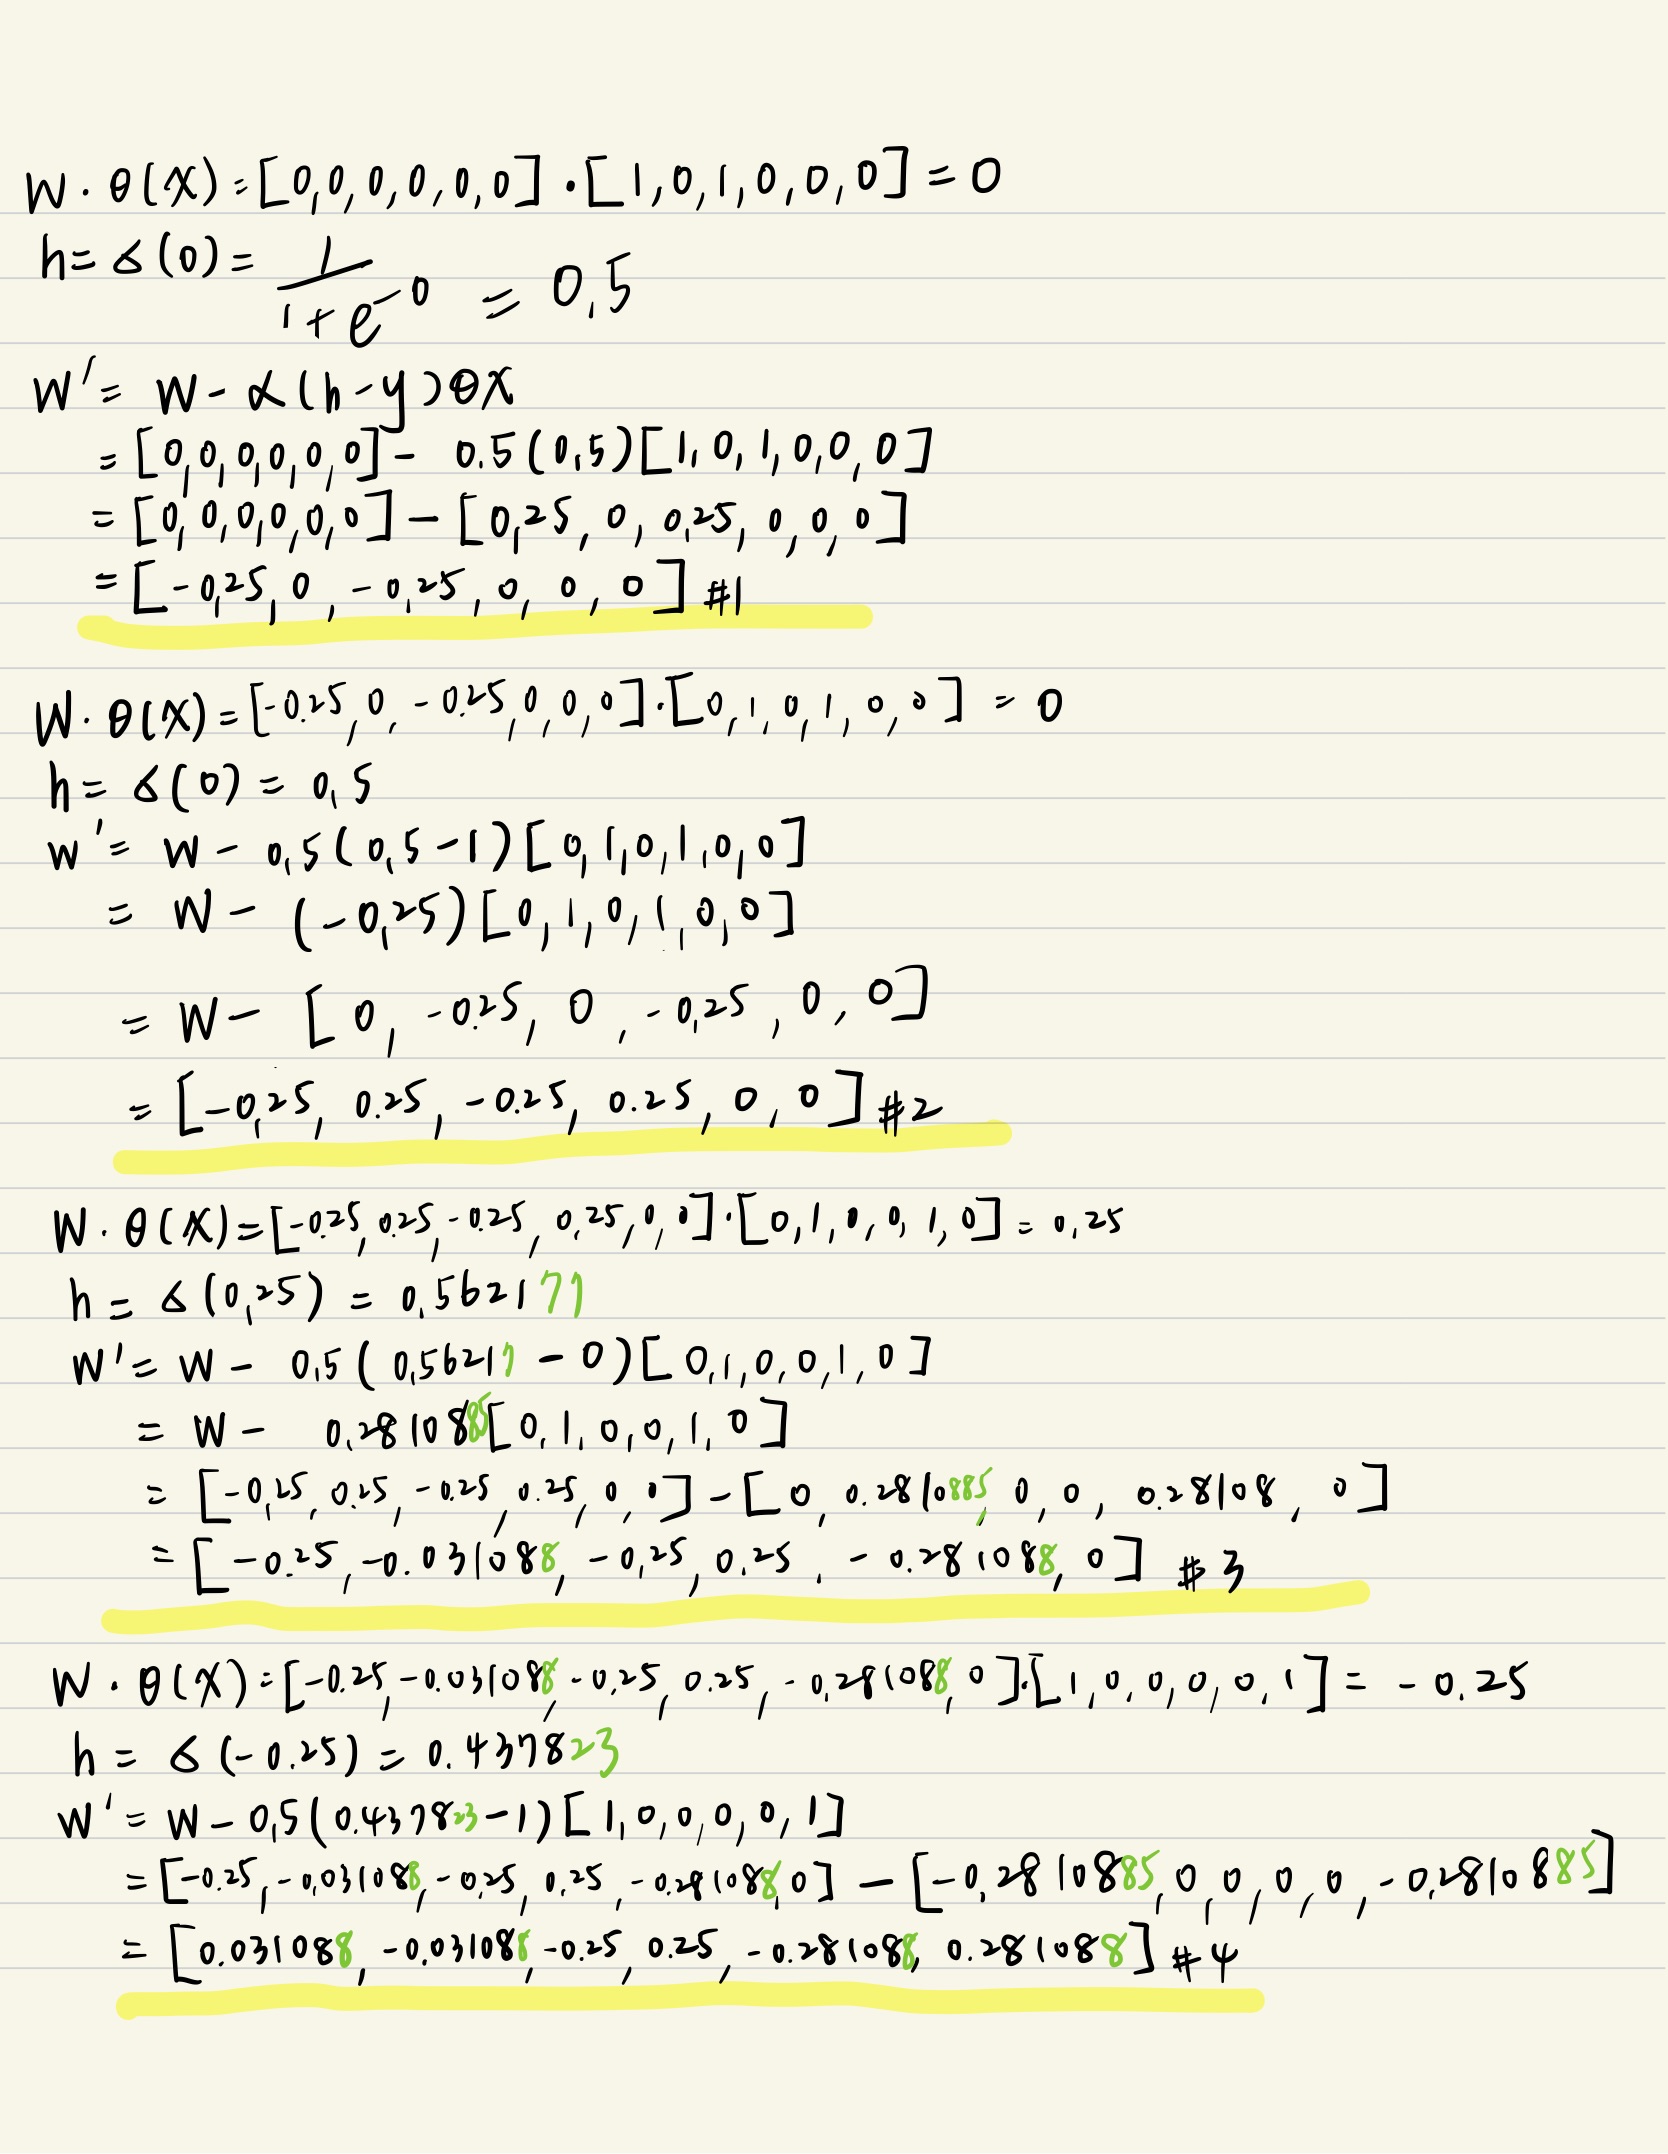 W · θ(X) = [0,0,0,0,0,0] · [1,0,1,0,0,0] = 0
h = σ(0) = 1/(1+e^-0) = 0.5
W' = W - α(h-y)θX
= [0,0,0,0,0,0] - 0.5(0.5)[1,0,1,0,0,0]
= [0,0,0,0,0,0] - [0.25, 0, 0.25, 0, 0, 0]
= [-0.25, 0, -0.25, 0, 0, 0] #1
W · θ(X) = [-0.25, 0, -0.25, 0, 0, 0] · [0,1,0,1,0,0] = 0
h = σ(0) = 0.5
w' = W - 0.5(0.5-1)[0,1,0,1,0,0]
= W - (-0.25)[0,1,0,1,0,0]
= W - [0, -0.25, 0, -0.25, 0, 0]
= [-0.25, 0.25, -0.25, 0.25, 0, 0] #2
W · θ(X) = [-0.25, 0.25, -0.25, 0.25, 0, 0] · [0,1,0,0,1,0] = 0.25
h = σ(0.25) = 0.562177
W' = W - 0.5(0.56217 - 0)[0,1,0,0,1,0]
= W - 0.2810885[0,1,0,0,1,0]
= [-0.25, 0.25, -0.25, 0.25, 0, 0] - [0, 0.2810885, 0, 0, 0.28108, 0]
= [-0.25, -0.031088, -0.25, 0.25, -0.281088, 0] #3
W · θ(X) = [-0.25, -0.031088, -0.25, 0.25, -0.281088, 0] · [1,0,0,0,0,1] = -0.25
h = σ(-0.25) = 0.437823
W' = W - 0.5(0.437823-1)[1,0,0,0,0,1]
= [-0.25, -0.031088, -0.25, 0.25, -0.281088, 0] - [-0.2810885, 0, 0, 0, 0, -0.2810885]
= [0.031088, -0.031088, -0.25, 0.25, -0.281088, 0.281088] #4